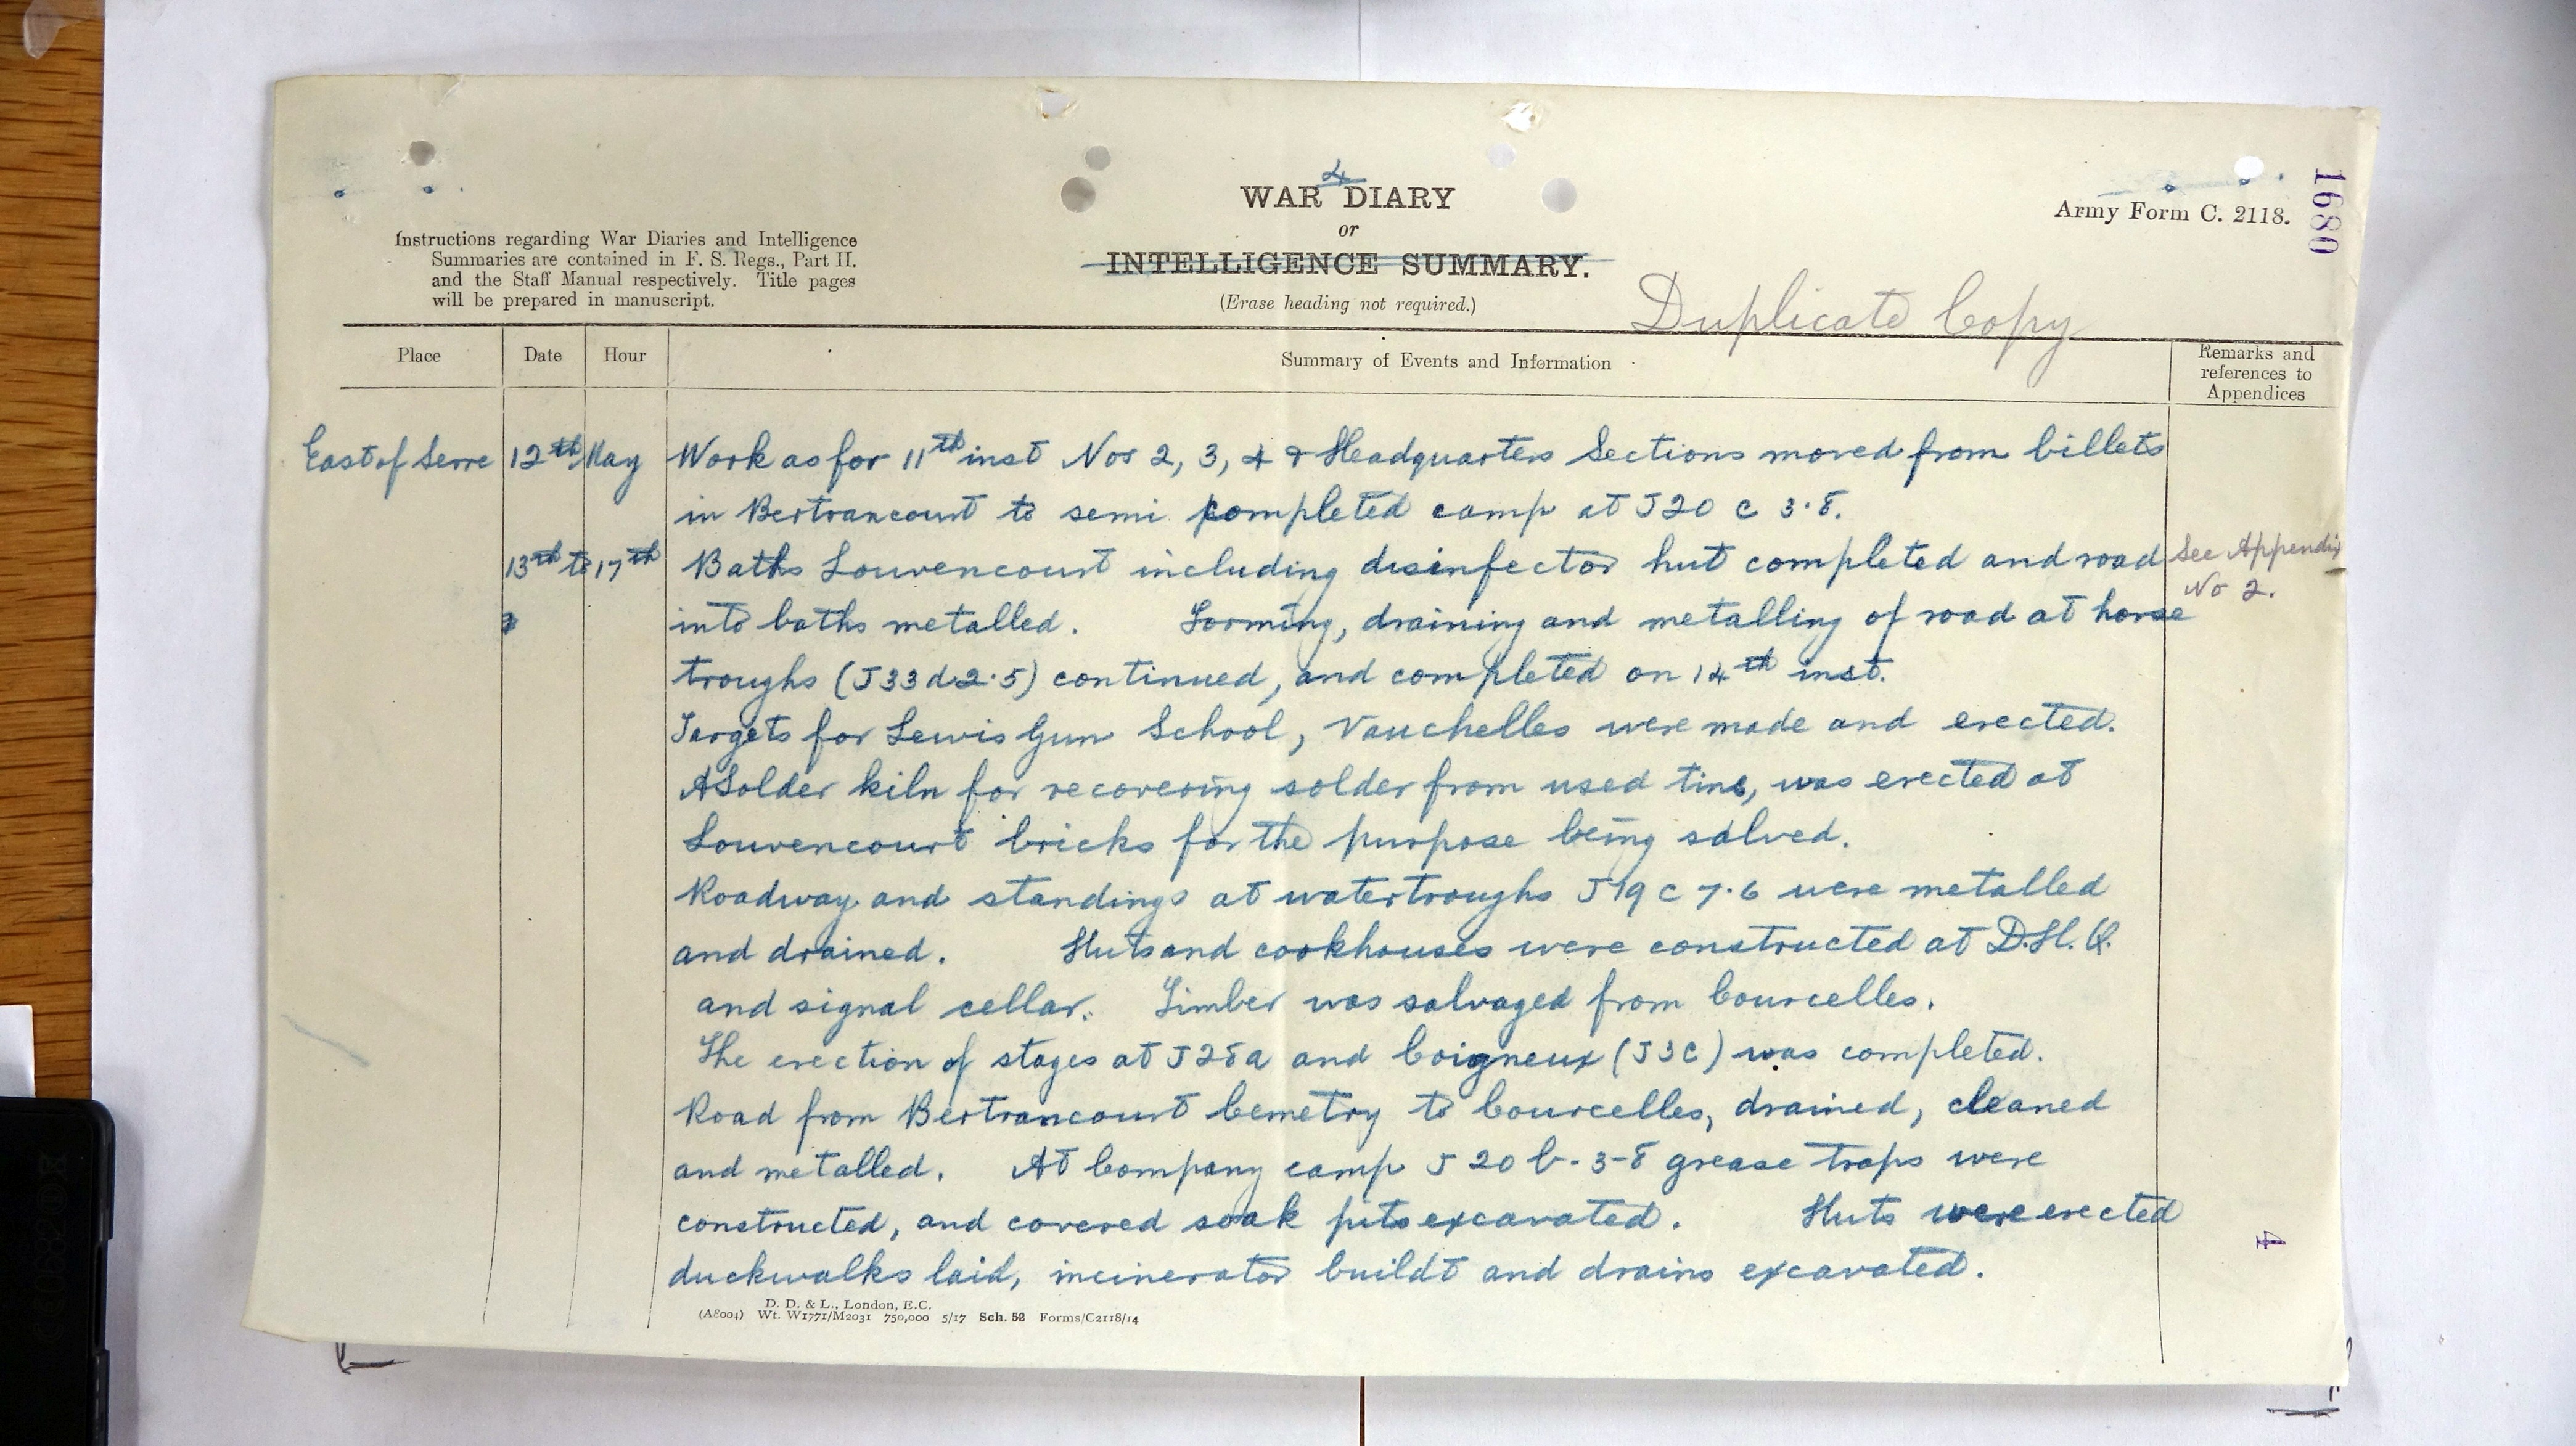 4
WAR DIARY
or
INTELLIGENCE SUMMARY.
(Erase heading not required.)
Army Form C. 2118.
1680
Instructions regarding War Diaries and Intelligence
Summaries are contained in F. S. Regs., Part II.
and the Staff Manual respectively. Title pages
will be prepared in manuscript.
Duplicate Copy
Place Date Hour Summary of Events and Information Remarks and references to Appendices
East of Serre 12th May Work as for 11th inst Nos 2, 3, 4 & Headquarters Sections moved from billets
in Bertrancourt to semi completed camp at J20 c 3.8.
13th to 17th Baths Louvencourt including disinfector hut completed and road See Appendix
No 2.
into baths metalled. Forming, draining and metalling of road at horse
troughs (J33d.2.5) continued, and completed on 14th inst.
Targets for Lewis Gun School, Vauchelles were made and erected.
A Solder kiln for recovering solder from used tins, was erected at
Louvencourt bricks for the purpose being salved.
Roadway and standings at watertroughs J19 c 7.6 were metalled
and drained. Huts and cookhouses were constructed at D.H.Q.
and signal cellar. Timber was salvaged from Courcelles.
The erection of stages at J28a and Coigneux (J3C) was completed.
Road from Bertrancourt Cemetry to Courcelles, drained, cleaned
and metalled. At Company camp J 20 b. 3-8 grease traps were
constructed, and covered soak pits excavated. Huts were erected
duckwalks laid, incinerator buildt and drains excavated.
4
D. D. & L., London, E.C.
(A8004) Wt. W1771/M2031 750,000 5/17 Sch. 52 Forms/C2118/14